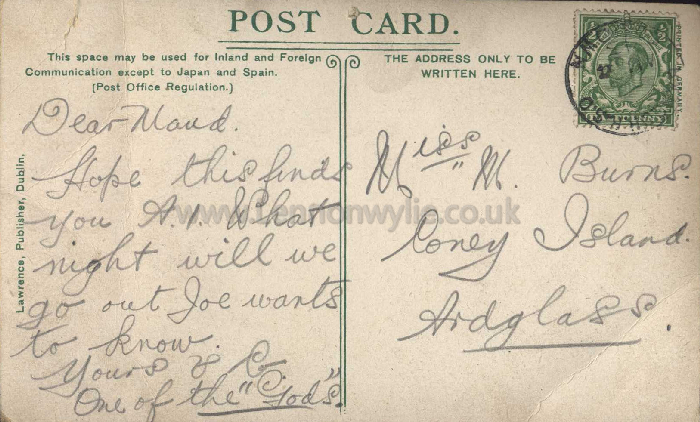 POST CARD.
This space may be used for Inland and Foreign
Communication except to Japan and Spain.
[Post Office Regulation.]
THE ADDRESS ONLY TO BE
WRITTEN HERE.
Lawrence, Publisher, Dublin.
Dear Maud.
Hope this finds
you A.1. What
night will we
go out Joe wants
to know.
Yours & C
One of the "Gods".
Miss M. Burns.
Coney Island.
Ardglass.
www.lennonwylie.co.uk
HALFPENNY